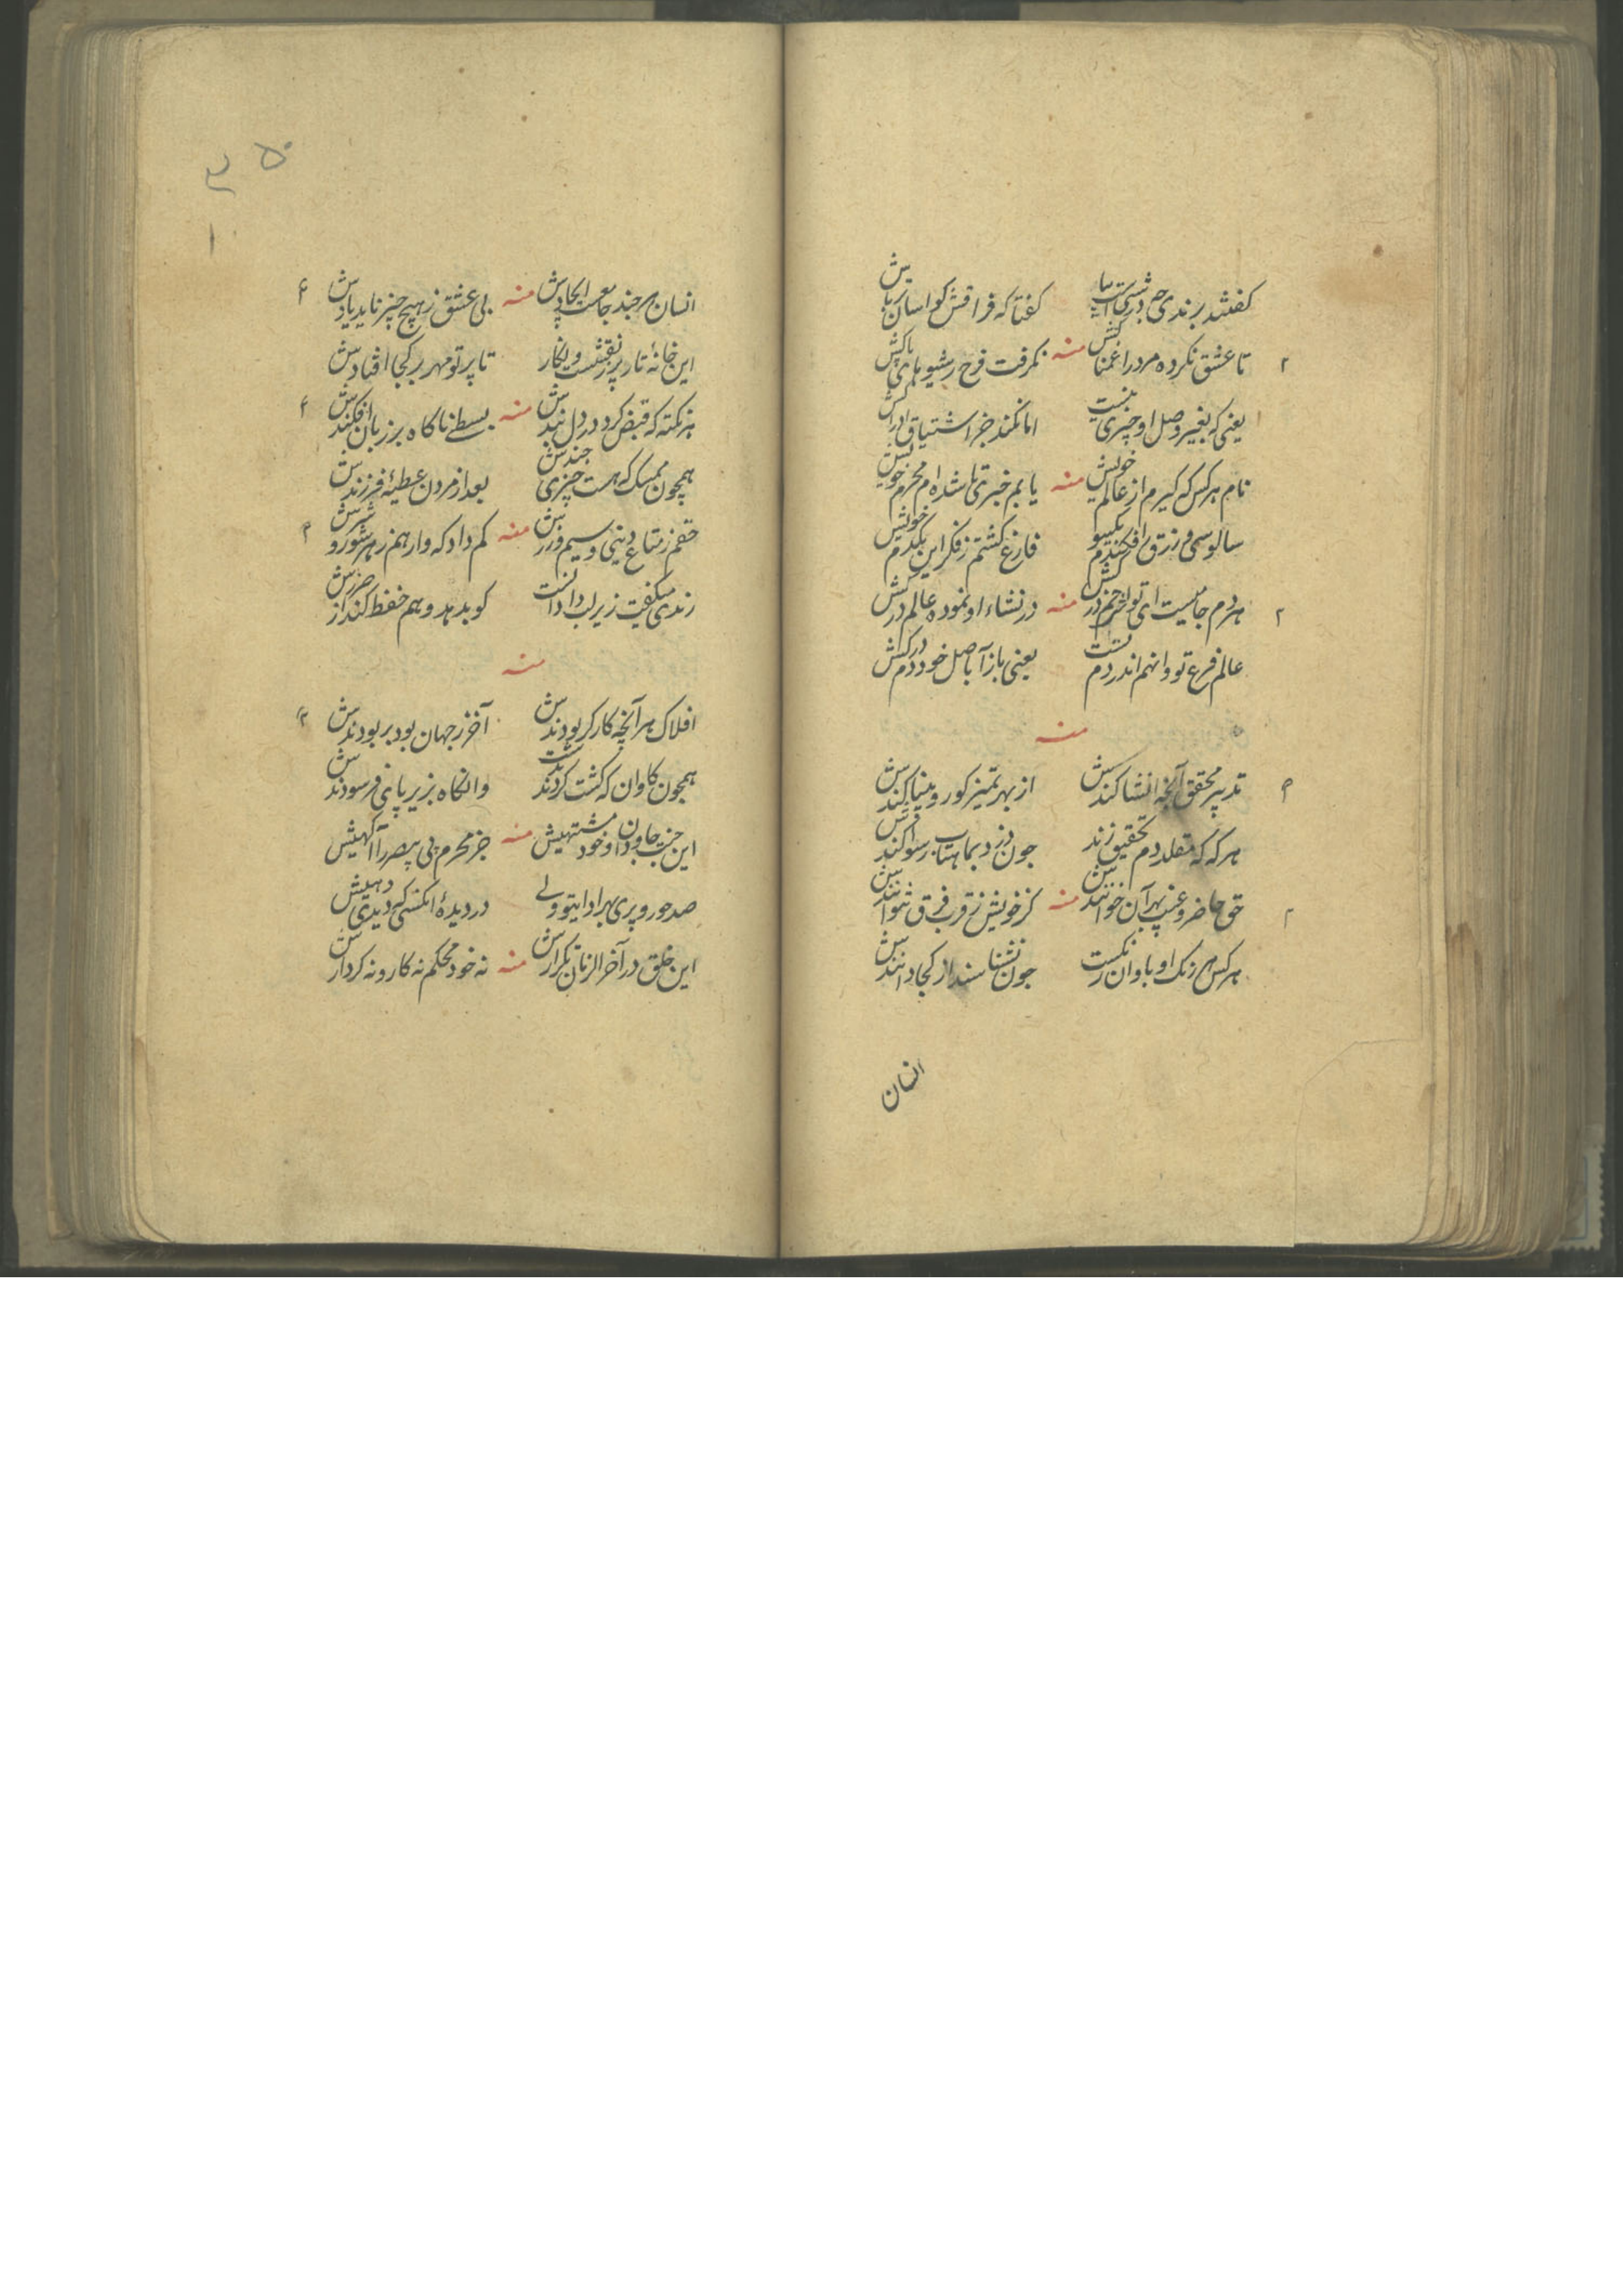 کفتند برندی چه درشتیست بیا
کفتا که فراقش کو اسان یا بیش
تا عشق نکرده مرد را غمناکش
منه
نکرفت فرح ز شیوهای پاکش
یعنی که بغیر وصل او چیزی نیست
اما نکند جز اشتیاق ادراکش
نام هر کس که کیرم از عالم خویش
منه
یابم خبری تا شده ام محرم خویش
سالوسی و زرق را فکندم یکسو
فارغ کشتم ز فکر این یکدم خویش
هردم جامیست ای تو
منه
در نشاء او نموده عالم در کش
عالم فرع تو و انهم اندر دم تست
یعنی بازآ باصل خود دم در کش
منه
تدبیر محقق آنچه انشا کندش
از بهر تمیز کور و بینا کندش
هر که که مقلد دم تحقیق زند
چون دزد بماهتاب رسوا کندش
حق حاضر و غیب بهر آن خوانندش
منه
کز خویش ز قرب فرق نتوانندش
هر کس همرنک او با وان رنکست
چون نشناسند از کجا دانندش
انسان
انسان هر چند جامعست ایجادش
منه
بی عشق ز هیچ چیز ناید یادش
این خانهٔ تار پر ز نقشست و نکار
تا پرتو مهر بر کجا افتادش
هر نکته که قبض کرد در دل بندش
منه
بسطی ناکاه بر زبان افکندش
همچون ممسک که هست چیزی چندش
بعد از مردن عطیهٔ فرزندش
حقم ز متاع دینی و سیم و زرش
منه
کم داد که وارهم ز هر شور و شرش
رندی میکفت زیر لب دا دانست
کو بدهد و هم حفظ کند از ضررش
منه
افلاک هر آنچه کار کر بودندش
آخر ز جهان بود بربودندش
همچون کاوان که کشت کردند نخست
وانکاه بزیر پای فرسودندش
این جنت جاودان و خود مشتهیش
منه
جز محرم بی بصر را آکهیش
صد حور و پری بهر ادا بیتو ولی
در دیدهٔ انکس که دیدی دهیش
این خلق در آخر الزمان تکرارش
منه
نه خود محکم نه کار و نه کردارش